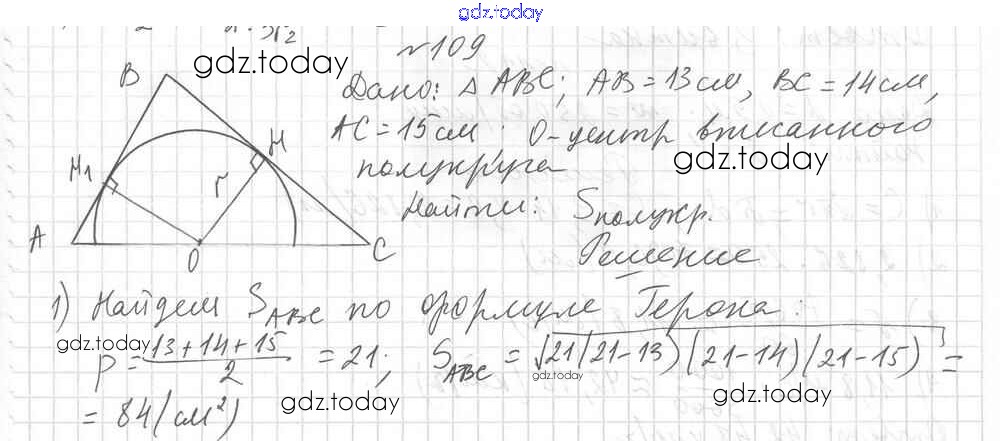 gdz.today
№109
gdz.today
Дано: △ ABC; AB = 13 см, BC = 14 см,
AC = 15 см; O - центр вписанного
полукруга
gdz.today
Найти: Sполукр.
Решение
B
H
H1
r
A
O
C
1) Найдем SABC по формуле Герона:
gdz.today
p = (13 + 14 + 15)/2 = 21; SABC = √21(21-13)(21-14)(21-15) =
gdz.today
gdz.today
= 84 (см²)
gdz.today